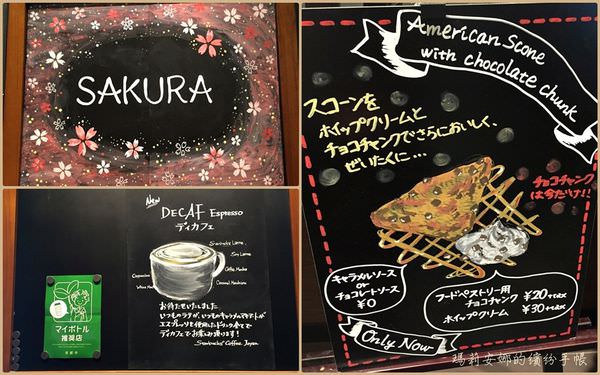 SAKURA
New
DECAF Espresso
ディカフェ
Starbucks Latte
Soy Latte
Cappuccino
Caffe Mocha
White Mocha
Caramel Macchiato
お待たせいたしました
いつものラテが、いつものキャラメルマキアートが
エスプレッソを使用したドリンク全てで
ディカフェでお楽しみ頂けます!
Starbucks Coffee Japan
マイボトル
推奨店
American Scone
with chocolate chunk
スコーンを
ホイップクリームと
チョコチャンクでさらにおいしく、
ぜいたくに…
チョコチャンク
は今だけ!!
キャラメルソース
or
チョコレートソース
¥0
フードペストリー用
チョコチャンク ¥20+tax
ホイップクリーム ¥30+tax
Only Now
瑪莉安娜的繽紛手帳